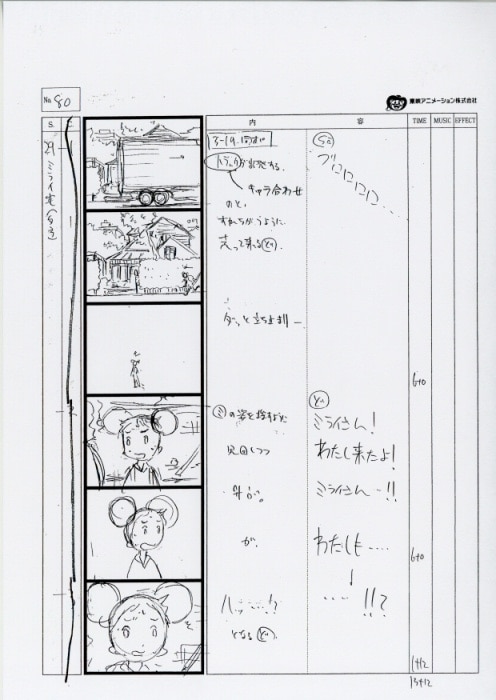 No 80
東映アニメーション株式会社
S.
C.
内
容
TIME
MUSIC
EFFECT
29
ミライ宅
3-19. 同ポ
トラックが出発する。
キャラ合わせ
のと、
すれちがうように
走って来るどれ。
SE
ブロロロロ
ダッと立ち止まり—
6+0
ミの姿を捜すように
見回しつつ
どれ
ミライさん!
わたし来たよ!
ミライさん…!!
が、
わたしも‥‥
‥‥!!?
6+0
ハッ‥‥!?
となるどれ。
1+12
13+12